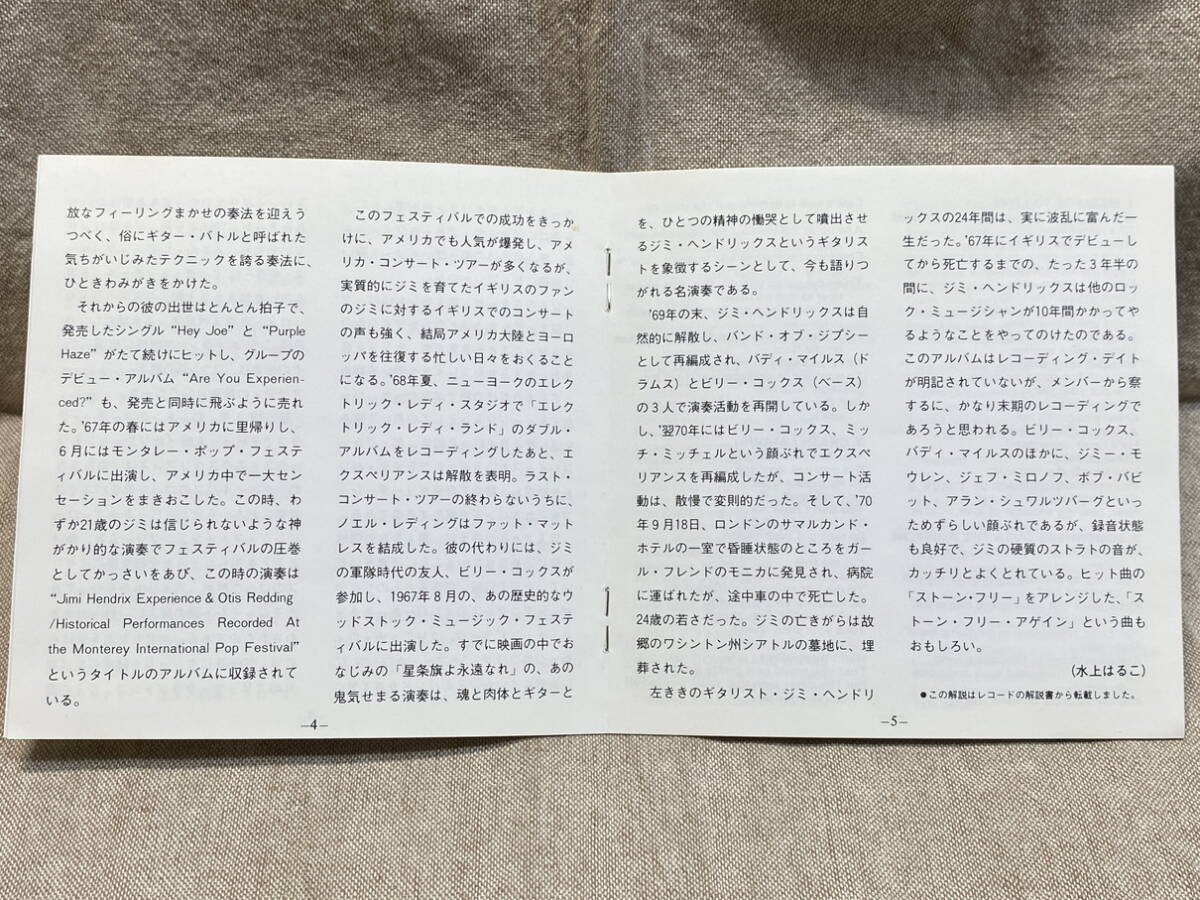 放なフィーリングまかせの奏法を迎えう
つべく、俗にギター・バトルと呼ばれた
気ちがいじみたテクニックを誇る奏法に、
ひときわみがきをかけた。
それからの彼の出世はとんとん拍子で、
発売したシングル“Hey Joe”と“Purple
Haze”がたて続けにヒットし、グループの
デビュー・アルバム“Are You Experien-
ced?”も、発売と同時に飛ぶように売れ
た。'67年の春にはアメリカに里帰りし、
6月にはモンタレー・ポップ・フェステ
ィバルに出演し、アメリカ中で一大セン
セーションをまきおこした。この時、わ
ずか21歳のジミは信じられないような神
がかり的な演奏でフェスティバルの圧巻
としてかっさいをあび、この時の演奏は
“Jimi Hendrix Experience & Otis Redding
/Historical Performances Recorded At
the Monterey International Pop Festival”
というタイトルのアルバムに収録されて
いる。
このフェスティバルでの成功をきっか
けに、アメリカでも人気が爆発し、アメ
リカ・コンサート・ツアーが多くなるが、
実質的にジミを育てたイギリスのファン
のジミに対するイギリスでのコンサート
の声も強く、結局アメリカ大陸とヨーロ
ッパを往復する忙しい日々をおくること
になる。'68年夏、ニューヨークのエレク
トリック・レディ・スタジオで「エレク
トリック・レディ・ランド」のダブル・
アルバムをレコーディングしたあと、エ
クスペリアンスは解散を表明。ラスト・
コンサート・ツアーの終わらないうちに、
ノエル・レディングはファット・マット
レスを結成した。彼の代わりには、ジミ
の軍隊時代の友人、ビリー・コックスが
参加し、1967年8月の、あの歴史的なウ
ッドストック・ミュージック・フェステ
ィバルに出演した。すでに映画の中でお
なじみの「星条旗よ永遠なれ」の、あの
鬼気せまる演奏は、魂と肉体とギターと
—4—
を、ひとつの精神の慟哭として噴出させ
るジミ・ヘンドリックスというギタリス
トを象徴するシーンとして、今も語りつ
がれる名演奏である。
'69年の末、ジミ・ヘンドリックスは自
然的に解散し、バンド・オブ・ジプシー
として再編成され、バディ・マイルス（ド
ラムス）とビリー・コックス（ベース）
の3人で演奏活動を再開している。しか
し、'翌70年にはビリー・コックス、ミッ
チ・ミッチェルという顔ぶれでエクスペ
リアンスを再編成したが、コンサート活
動は、散慢で変則的だった。そして、'70
年9月18日、ロンドンのサマルカンド・
ホテルの一室で昏睡状態のところをガー
ル・フレンドのモニカに発見され、病院
に運ばれたが、途中車の中で死亡した。
24歳の若さだった。ジミの亡きがらは故
郷のワシントン州シアトルの墓地に、埋
葬された。
左ききのギタリスト・ジミ・ヘンドリ
ックスの24年間は、実に波乱に富んだ一
生だった。'67年にイギリスでデビューし
てから死亡するまでの、たった3年半の
間に、ジミ・ヘンドリックスは他のロッ
ク・ミュージシャンが10年間かかってや
るようなことをやってのけたのである。
このアルバムはレコーディング・デイト
が明記されていないが、メンバーから察
するに、かなり末期のレコーディングで
あろうと思われる。ビリー・コックス、
バディ・マイルスのほかに、ジミー・モ
ウレン、ジェフ・ミロノフ、ボブ・バビ
ット、アラン・シュワルツバーグといっ
ためずらしい顔ぶれであるが、録音状態
も良好で、ジミの硬質のストラトの音が、
カッチリとよくとれている。ヒット曲の
「ストーン・フリー」をアレンジした、「ス
トーン・フリー・アゲイン」という曲も
おもしろい。
（水上はるこ）
●この解説はレコードの解説書から転載しました。
—5—